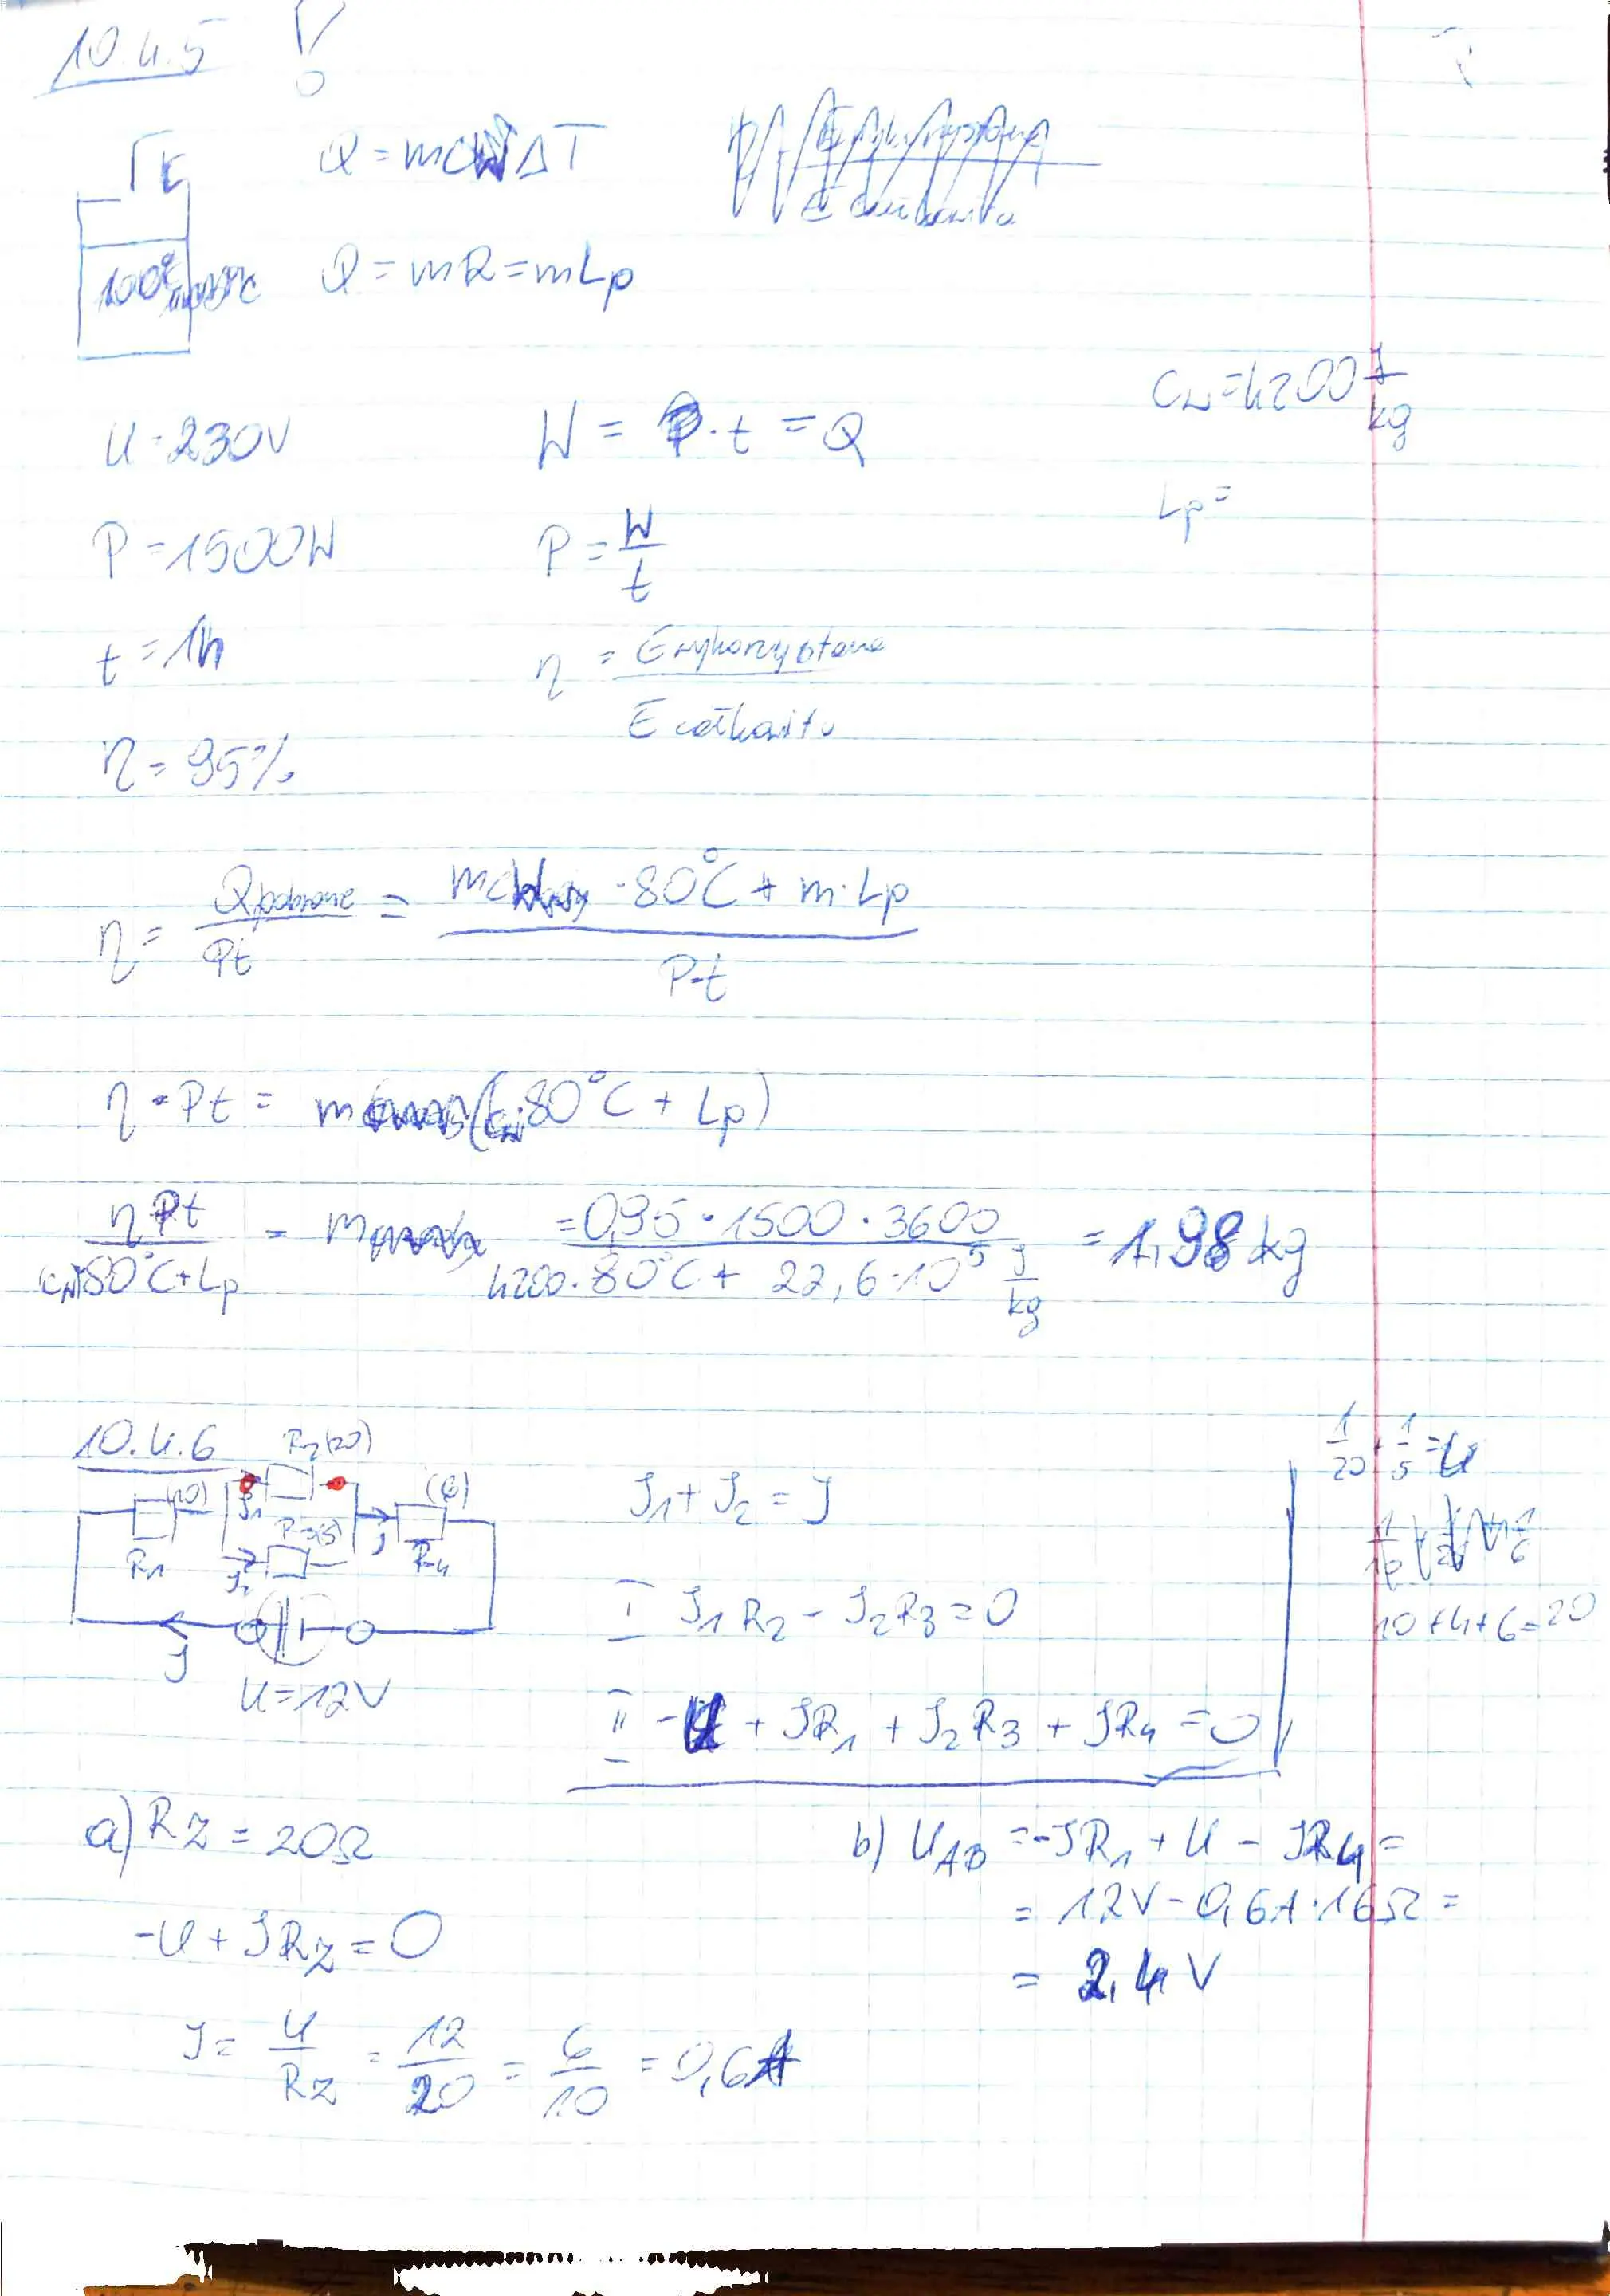 10.4.5 !
Q = mcwΔT
100°C
Q = mR = mLp
cw = 4200 J/kg
U = 230V
W = P · t = Q
Lp =
P = 1500W
P = W/t
t = 1h
η = E wykorzystana / E całkowita
η = 95%
η = Q pobrane / Pt = mcw · 80°C + m · Lp / P · t
η · Pt = m(cw · 80°C + Lp)
ηPt / cw · 80°C + Lp = m = 0,95 · 1500 · 3600 / 4200 · 80°C + 22,6 · 10⁵ J/kg = 1,98 kg
10.4.6
R2 (20)
(10)
(6)
J1
R3 (5)
R1
J2
J
R4
J
U = 12V
J1 + J2 = J
I J1R2 - J2R3 = 0
II -U + JR1 + J2R3 + JR4 = 0
1/20 + 1/5 = 4
10 + 4 + 6 = 20
a) Rz = 20Ω
-U + JRz = 0
J = U/Rz = 12/20 = 6/10 = 0,6A
b) UAB = -JR1 + U - JR4 =
= 12V - 0,6A · 16Ω =
= 2,4 V